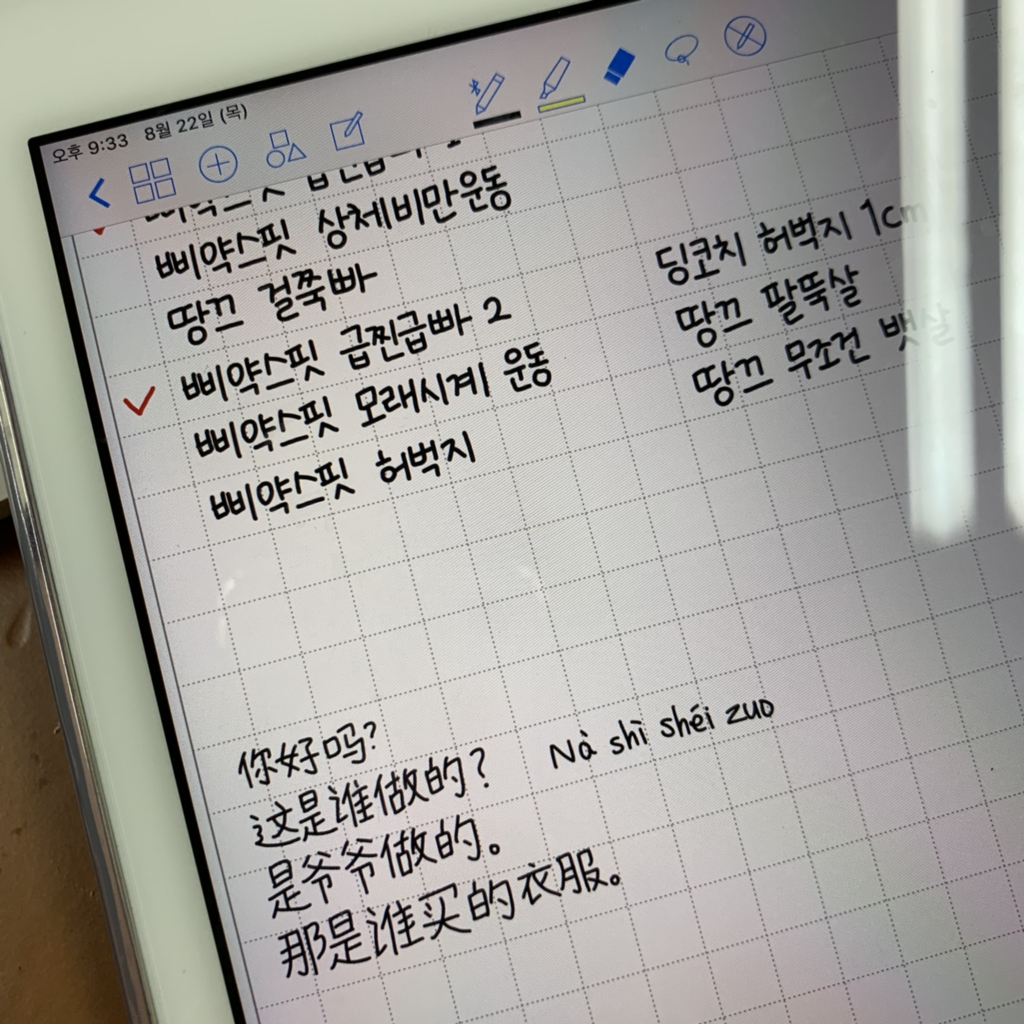 오후 9:33 8월 22일 (목)
삐약스핏 상체비만운동
땅끄 걸쭉빠
삐약스핏 급찐급빠 2
삐약스핏 모래시계 운동
삐약스핏 허벅지
딩코치 허벅지 1cm
땅끄 팔뚝살
땅끄 무조건 뱃살
你好吗?
这是谁做的? Nà shì shéi zuo
是爷爷做的。
那是谁买的衣服。